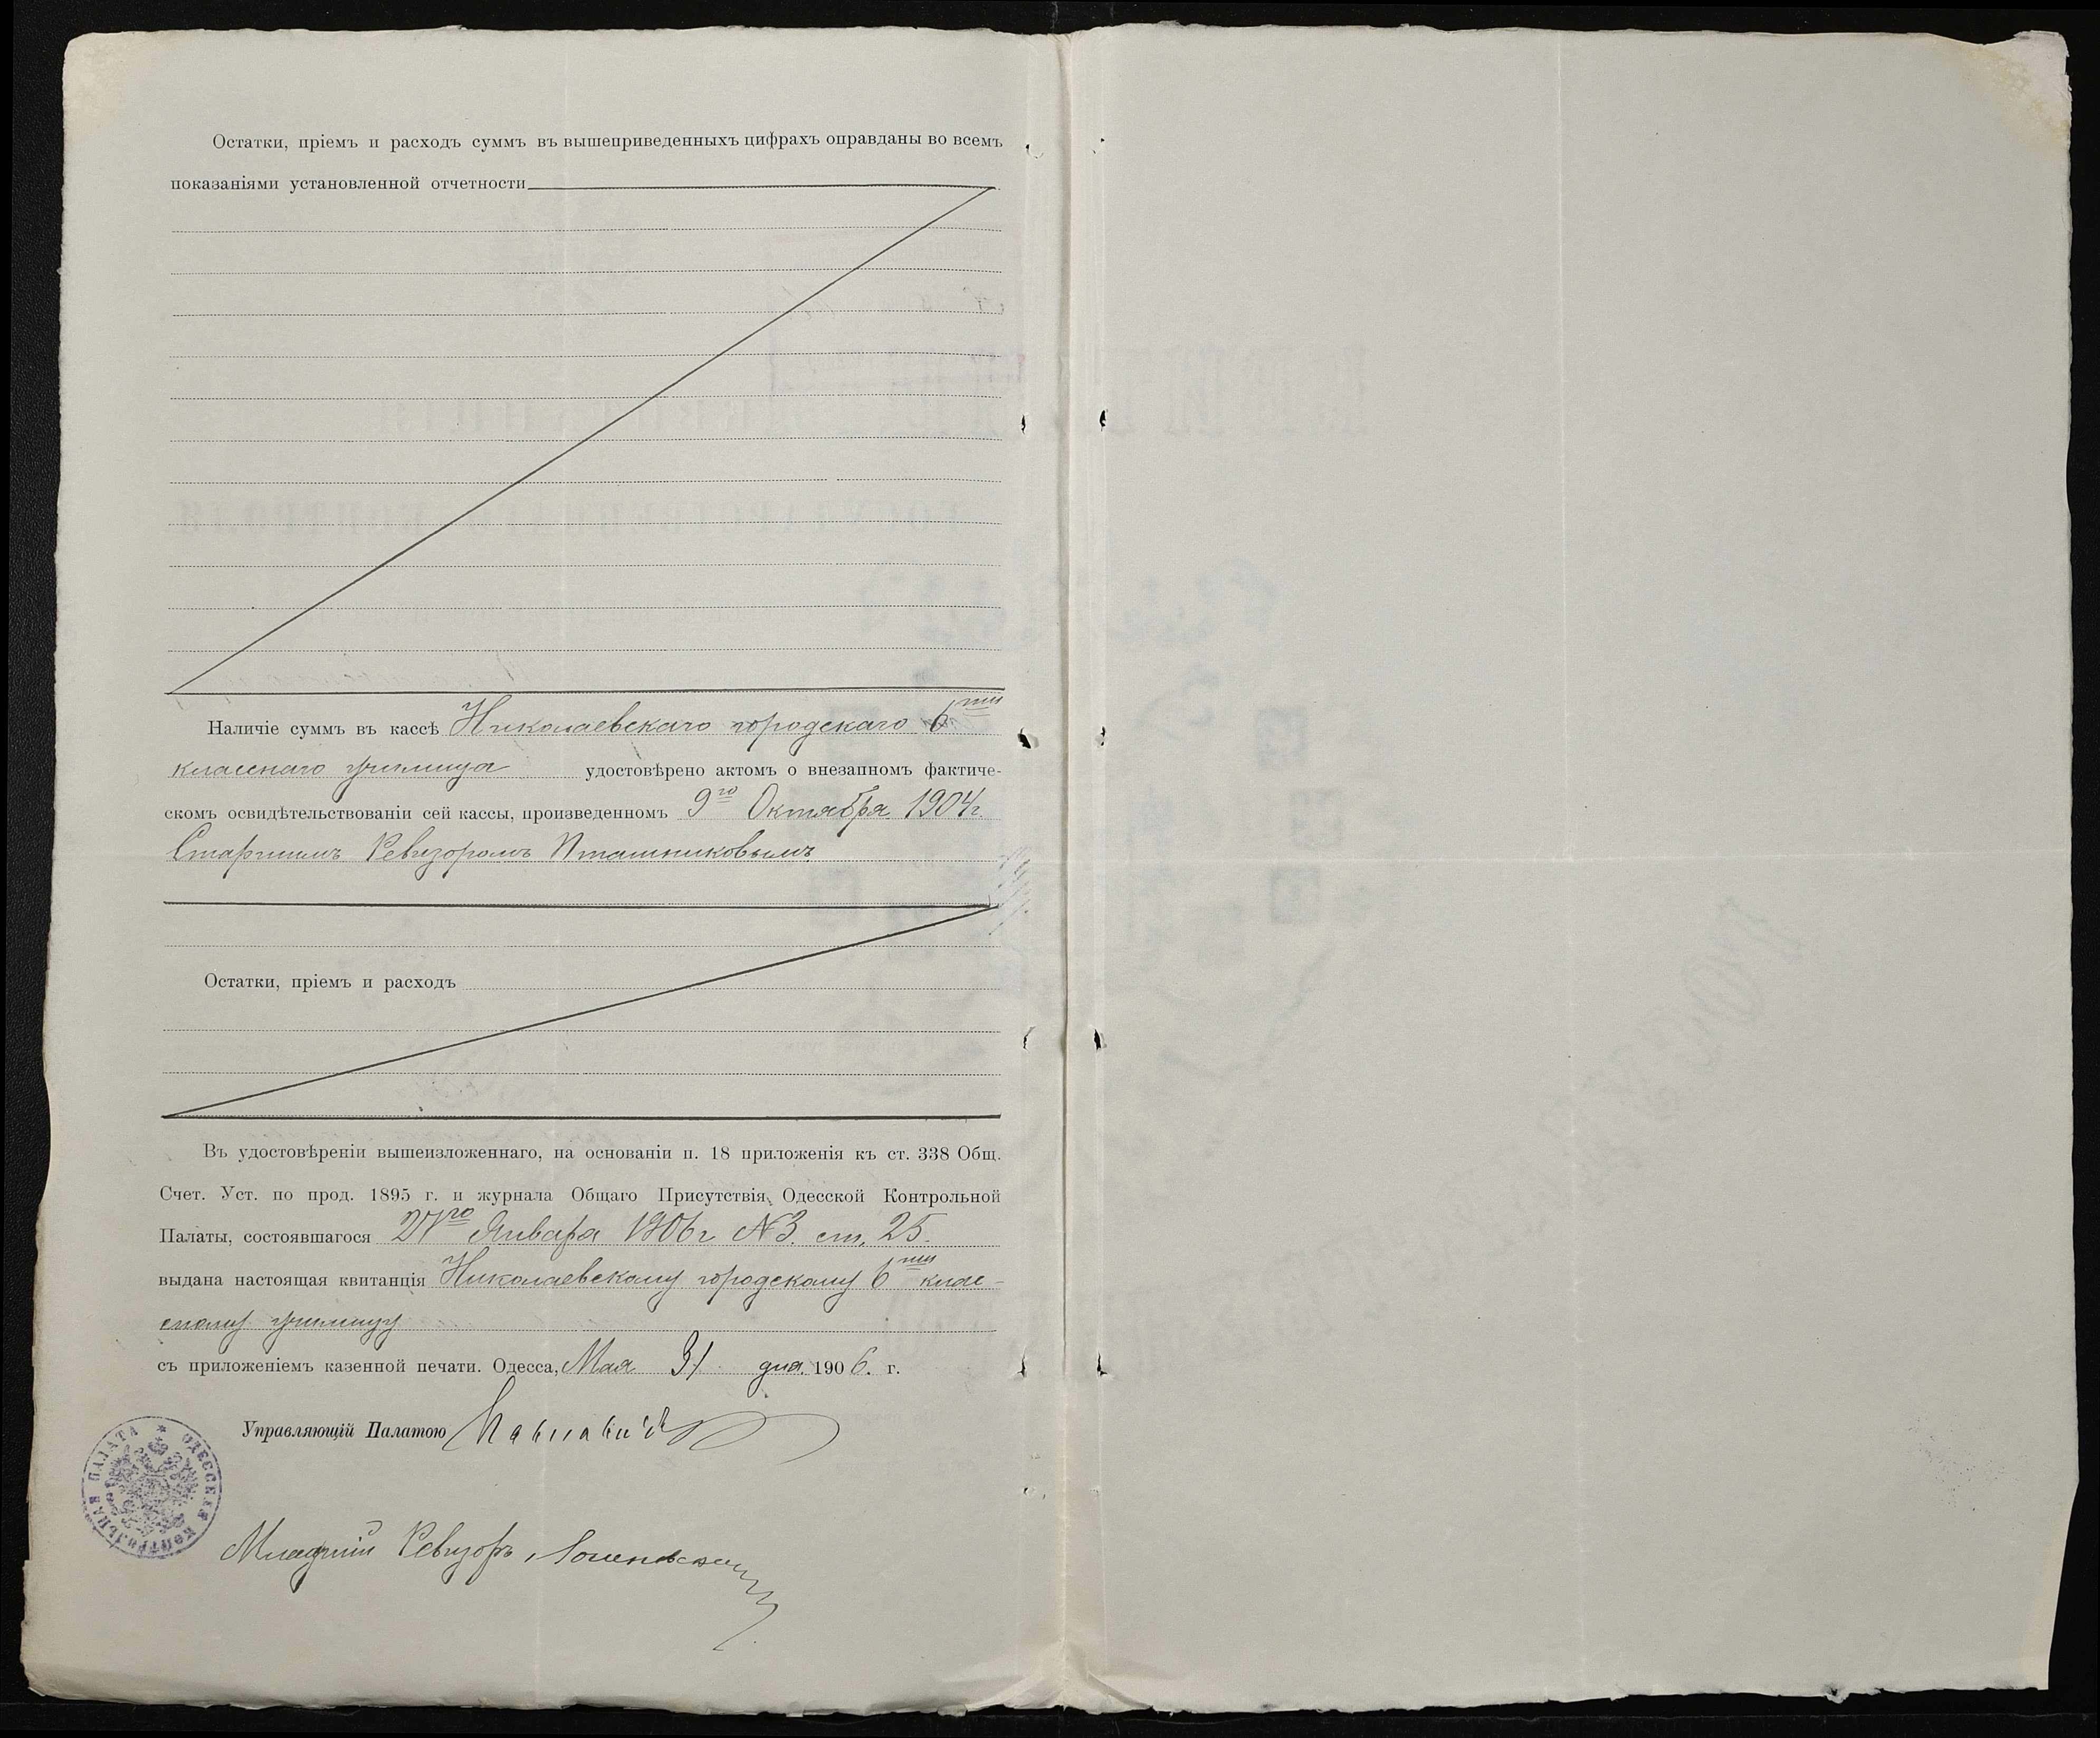 Остатки, пріемъ и расходъ суммъ въ вышеприведенныхъ цифрахъ оправданы во всемъ
показаніями установленной отчетности
Наличіе суммъ въ кассѣ Николаевскаго городскаго 6ти
класснаго училища удостовѣрено актомъ о внезапномъ фактиче-
скомъ освидѣтельствованіи сей кассы, произведенномъ 9го Октября 1904 г.
Старшимъ Ревизоромъ Пташниковымъ
Остатки, пріемъ и расходъ
Въ удостовѣреніи вышеизложеннаго, на основаніи п. 18 приложенія къ ст. 338 Общ.
Счет. Уст. по прод. 1895 г. и журнала Общаго Присутствія Одесской Контрольной
Палаты, состоявшагося 27го Января 1906 г №3. ст. 25.
выдана настоящая квитанція Николаевскому городскому 6ти клас-
сному училищу
съ приложеніемъ казенной печати. Одесса, Мая 31 дня 1906. г.
Управляющій Палатою
ОДЕССКАЯ КОНТРОЛЬНАЯ ПАЛАТА
Младшій Ревизоръ